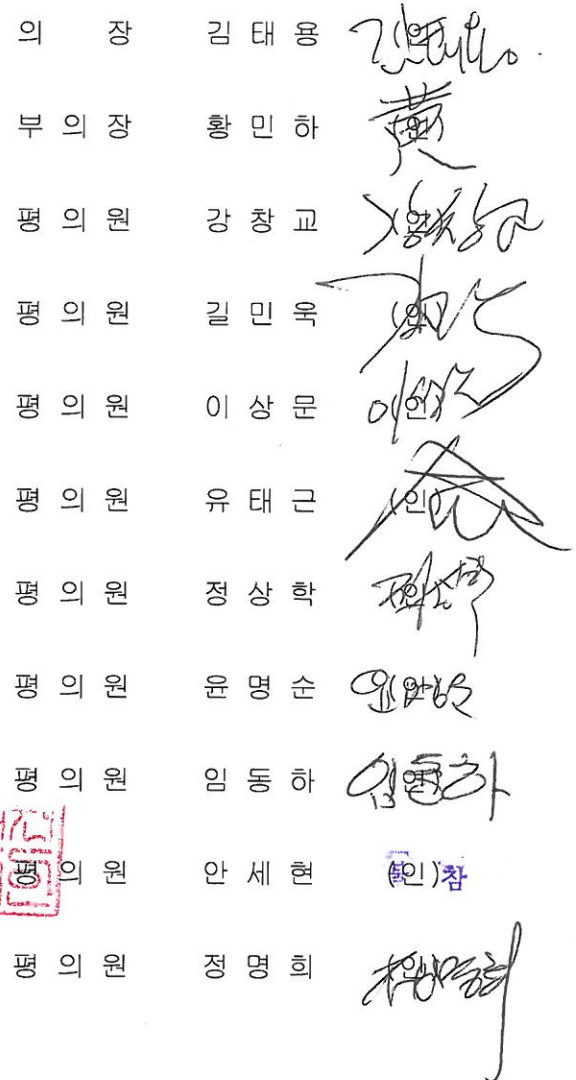 의 장 김 태 용 (인)
부 의 장 황 민 하 (인) 黃
평 의 원 강 창 교 (인)
평 의 원 길 민 욱 (인)
평 의 원 이 상 문 (인)
평 의 원 유 태 근 (인)
평 의 원 정 상 학 (인)
평 의 원 윤 명 순 (인)
평 의 원 임 동 하 (인)
평 의 원 안 세 현 (인) 불참
평 의 원 정 명 희 (인)